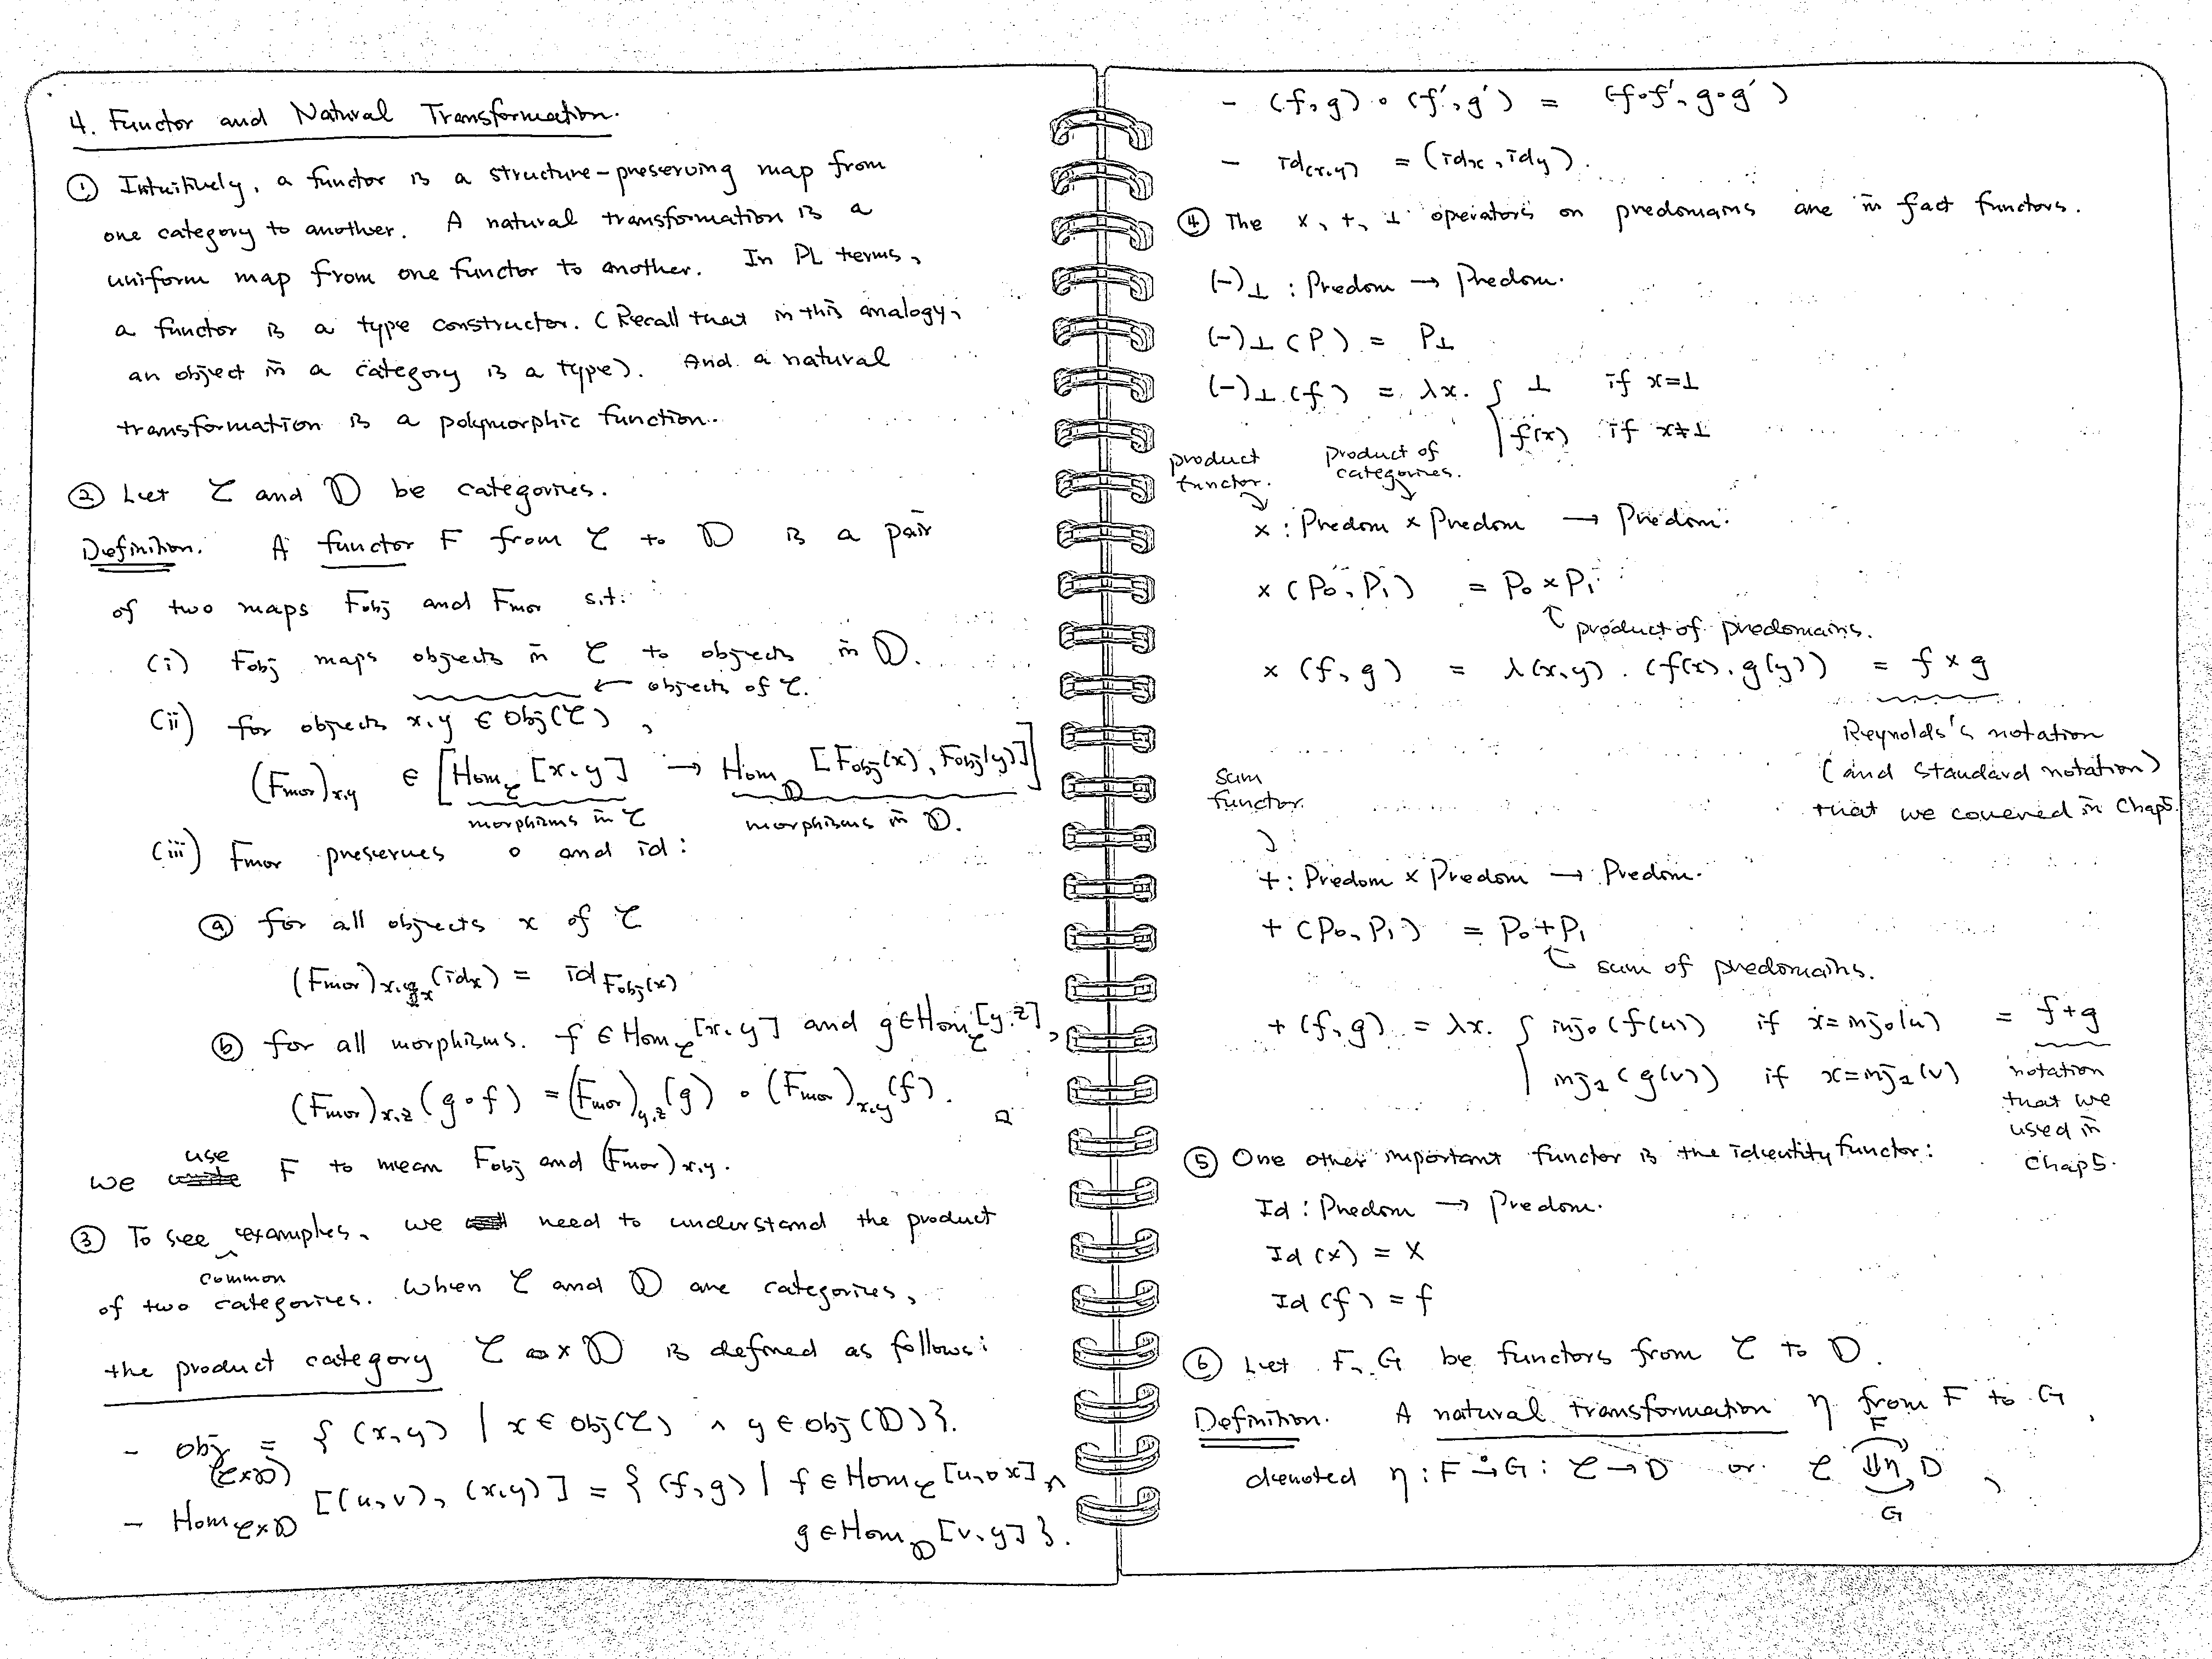 4. Functor and Natural Transformation.
① Intuitively, a functor is a structure-preserving map from
one category to another. A natural transformation is a
uniform map from one functor to another. In PL terms,
a functor is a type constructor. (Recall that in this analogy,
an object in a category is a type). And a natural
transformation is a polymorphic function.
② Let C and D be categories.
Definition. A functor F from C to D is a pair
of two maps Fobj and Fmor s.t.
(i) Fobj maps objects in C to objects in D.
← objects of C.
(ii) for objects x, y ∈ Obj(C),
(Fmor)x,y ∈ [Hom_C[x,y] → Hom_D[Fobj(x), Fobj(y)]]
morphisms in C morphisms in D.
(iii) Fmor preserves ∘ and id:
ⓐ for all objects x of C
(Fmor)x,x (idx) = id Fobj(x)
ⓑ for all morphisms. f ∈ Hom_C[x,y] and g ∈ Hom_C[y,z],
(Fmor)x,z (g∘f) = (Fmor)y,z (g) ∘ (Fmor)x,y (f).
we use F to mean Fobj and (Fmor)x,y.
③ To see examples, we need to understand the product
common
of two categories. When C and D are categories,
the product category C × D is defined as follows:
- obj(C×D) = { (x,y) | x ∈ Obj(C) ∧ y ∈ Obj(D) }.
- Hom C×D [(u,v), (x,y)] = { (f,g) | f ∈ Hom_C[u,x] ∧
g ∈ Hom_D[v,y] }.
- (f,g) ∘ (f',g') = (f∘f', g∘g')
- id(x,y) = (idx, idy).
④ The ×, +, ⊥ operators on predomains are in fact functors.
(-)⊥ : Predom → Predom.
(-)⊥ (P) = P⊥
(-)⊥ (f) = λx. { ⊥ if x=⊥
f(x) if x≠⊥
product functor. product of categories.
× : Predom × Predom → Predom.
× (P0, P1) = P0 × P1
product of predomains.
× (f, g) = λ(x,y). (f(x), g(y)) = f × g
Reynolds's notation
(and standard notation)
that we covered in Chap5.
sum
functor.
+ : Predom × Predom → Predom.
+ (P0, P1) = P0 + P1
sum of predomains.
+ (f, g) = λx. { inj0 (f(u)) if x = inj0(u) = f+g
inj1 (g(v)) if x = inj1(v)
notation
that we
used in
Chap5.
⑤ One other important functor is the identity functor:
Id : Predom → Predom.
Id (x) = x
Id (f) = f
⑥ Let F, G be functors from C to D.
Definition. A natural transformation η from F to G,
denoted η : F →̇ G : C → D or C ⇓η D,
F
G